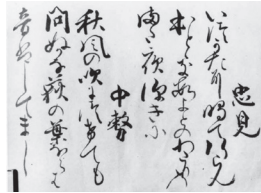 忠見
いつかたに鳴てゆくらん
ほとゝきすよとのわたりの
また夜深きに
中務
秋風の吹につけても
問ぬかな荻の葉ならは
音はしてまし